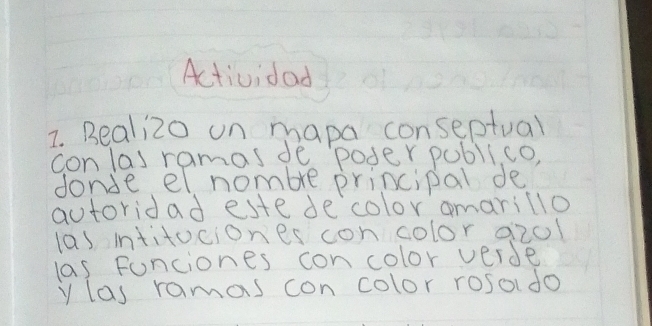 Actividad
1. Realizo un mapa conseptual
con las ramas de poder publico,
donde el nombre principal de
autoridad este de color amarillo
las intituciones con color azul
las funciones con color verde
y las ramas con color rosado